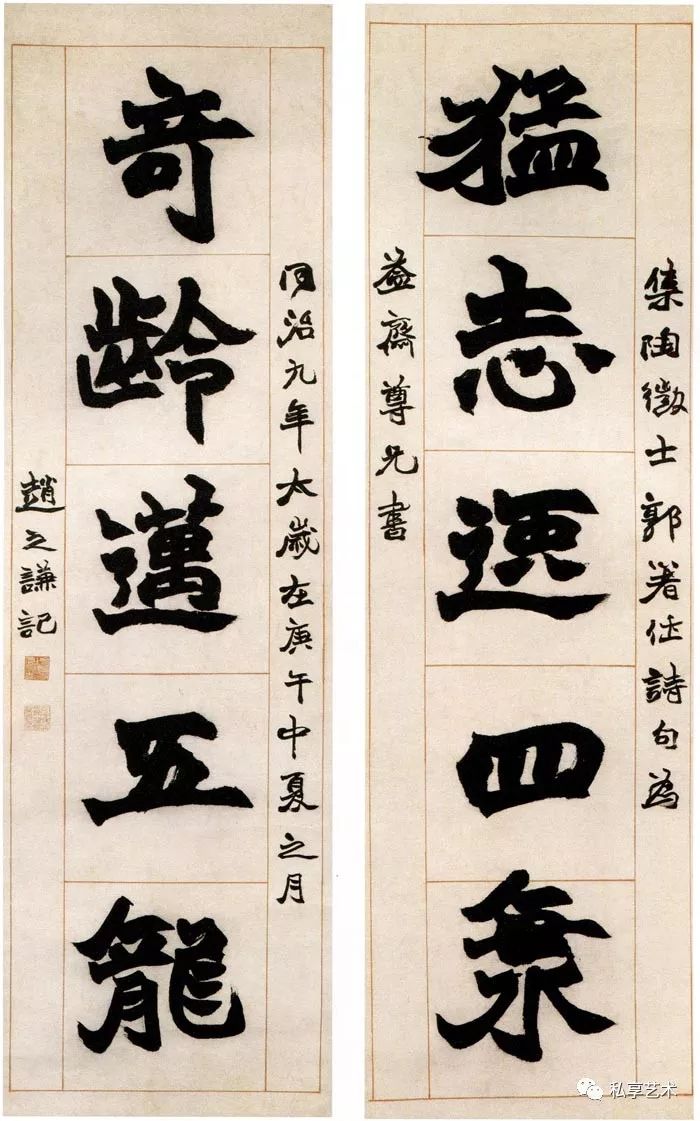 集陶徵士郭著作詩句為
猛志逸四海
益齋尊兄書
同治九年太歲在庚午中夏之月
竒齡邁五龍
趙之謙記
私享艺术